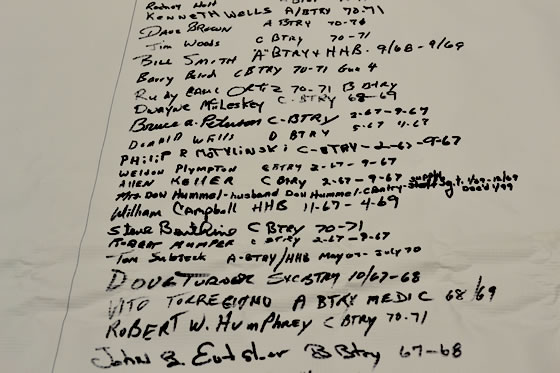 Rodney Holt
KENNETH WELLS A/BTRY 70-71
DAVE BROWN A BTRY 70-71
Jim Woods C BTRY 70-71
BILL SMITH A BTRY + HHB. 9/68 - 9/69
Barry Baird C BTRY 70-71 Gun 4
Rudy Earl ORTIZ 70-71 B Btry
Dwayne McLeskey C. BTRY 68-69
Bruce A. Peterson C-BTRY 2-67-9-67
DONALD Wells D BTRY 5-67
PHILIP R MOTYLINSKI C-BTRY-2-67-9-67
WELDON PLYMPTON C BTRY 2-67-9-67
ALLEN KELLER C Btry 2-67-9-67
Mrs. Don Hummel-husband Don Hummel-C Battry-Staff Sgt.
William Campbell HHB 11-67-4-69
Steve C BTRY 70-71
ROBERT C BTRY 2-67-9-67
Tom A-BTRY/HHB May 69- July 70
DOUG TURNER SVC BTRY 10/67-68
VITO A BTRY MEDIC 68/69
ROBERT W. HUMPHREY C BTRY 70-71
John B Btry 67-68